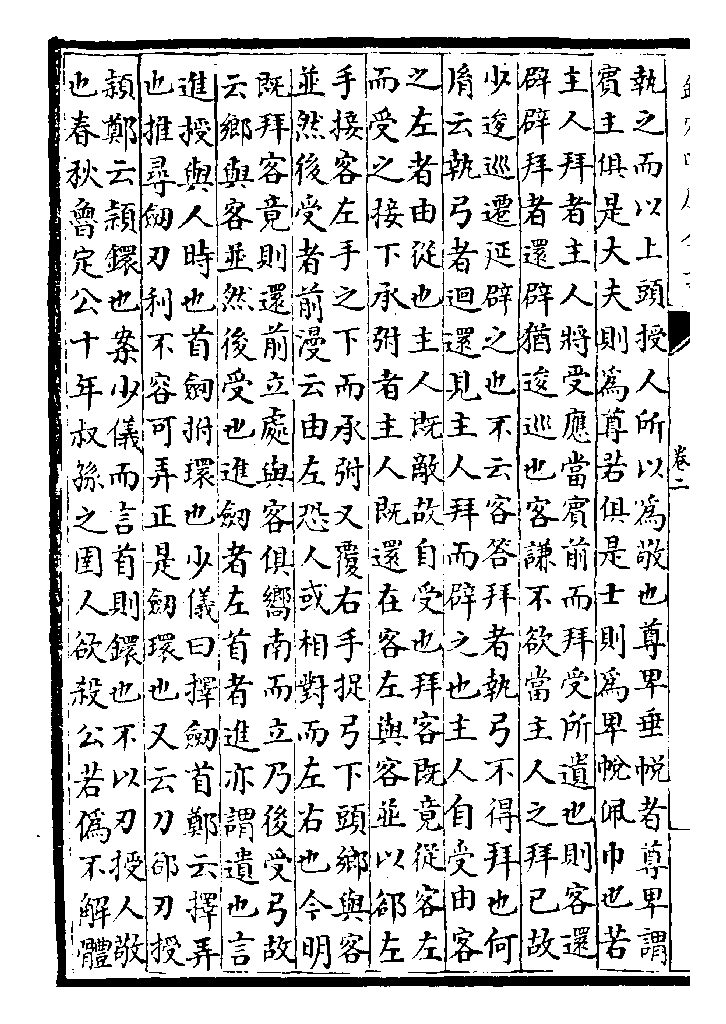 卷二
執之而以上頭授人所以為敬也尊卑垂帨者尊卑謂
賓主俱是大夫則為尊若俱是士則為卑帨佩巾也若
主人拜者主人將受應當賓前而拜受所遺也則客還
辟辟拜者還辟猶逡巡也客謙不欲當主人之拜已故
少逡巡遷延辟之也不云客答拜者執弓不得拜也何
胤云執弓者迴還見主人拜而辟之也主人自受由客
之左者由從也主人既敵故自受也拜客既竟從客左
而受之接下承弣者主人既還在客左與客並以郤左
手接客左手之下而承弣又覆右手捉弓下頭鄉與客
並然後受者前漫云由左恐人或相對而左右也今明
既拜客竟則還前立處與客俱嚮南而立乃後受弓故
云鄉與客並然後受也進劒者左首者進亦謂遺也言
進授與人時也首劒拊環也少儀曰擇劒首鄭云擇弄
也推尋劒刃利不容可弄正是劒環也又云刀郤刃授
頴鄭云頴鐶也案少儀而言首則鐶也不以刃授人敬
也春秋魯定公十年叔孫之圉人欲殺公若偽不解體